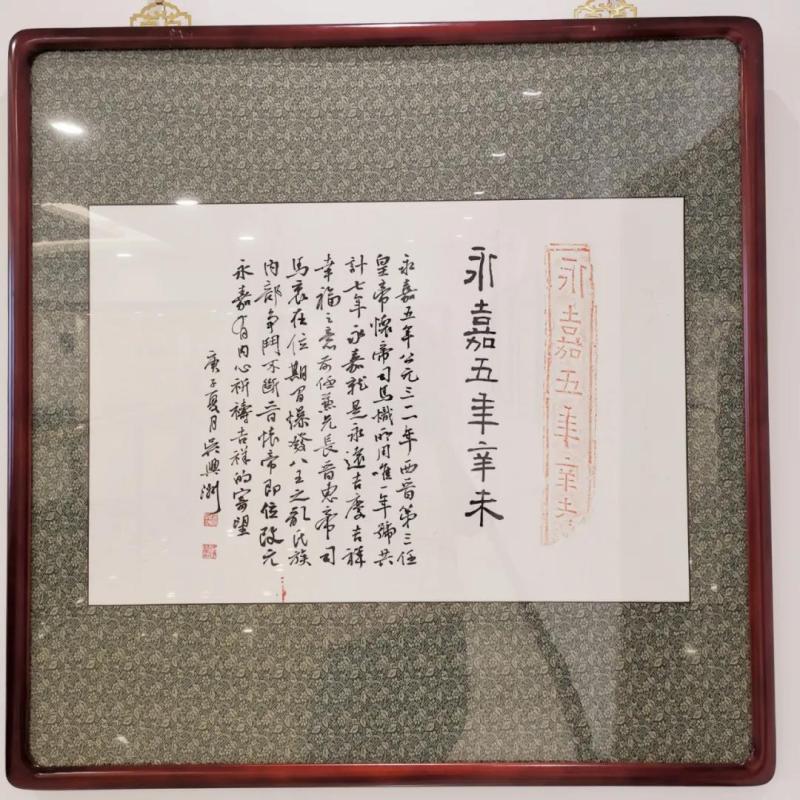 永嘉五年辛未
永嘉五年辛未
永嘉五年公元三一一年西晋第三任
皇帝怀帝司馬熾所用唯一年號共
計七年永嘉就是永遠吉慶吉祥
幸福之意前任兼兄長晋惠帝司
馬衷在位期间爆發八王之亂氏族
内部争鬥不斷晋怀帝即位改元
永嘉有内心祈禱吉祥的寄望
庚子夏月吴興